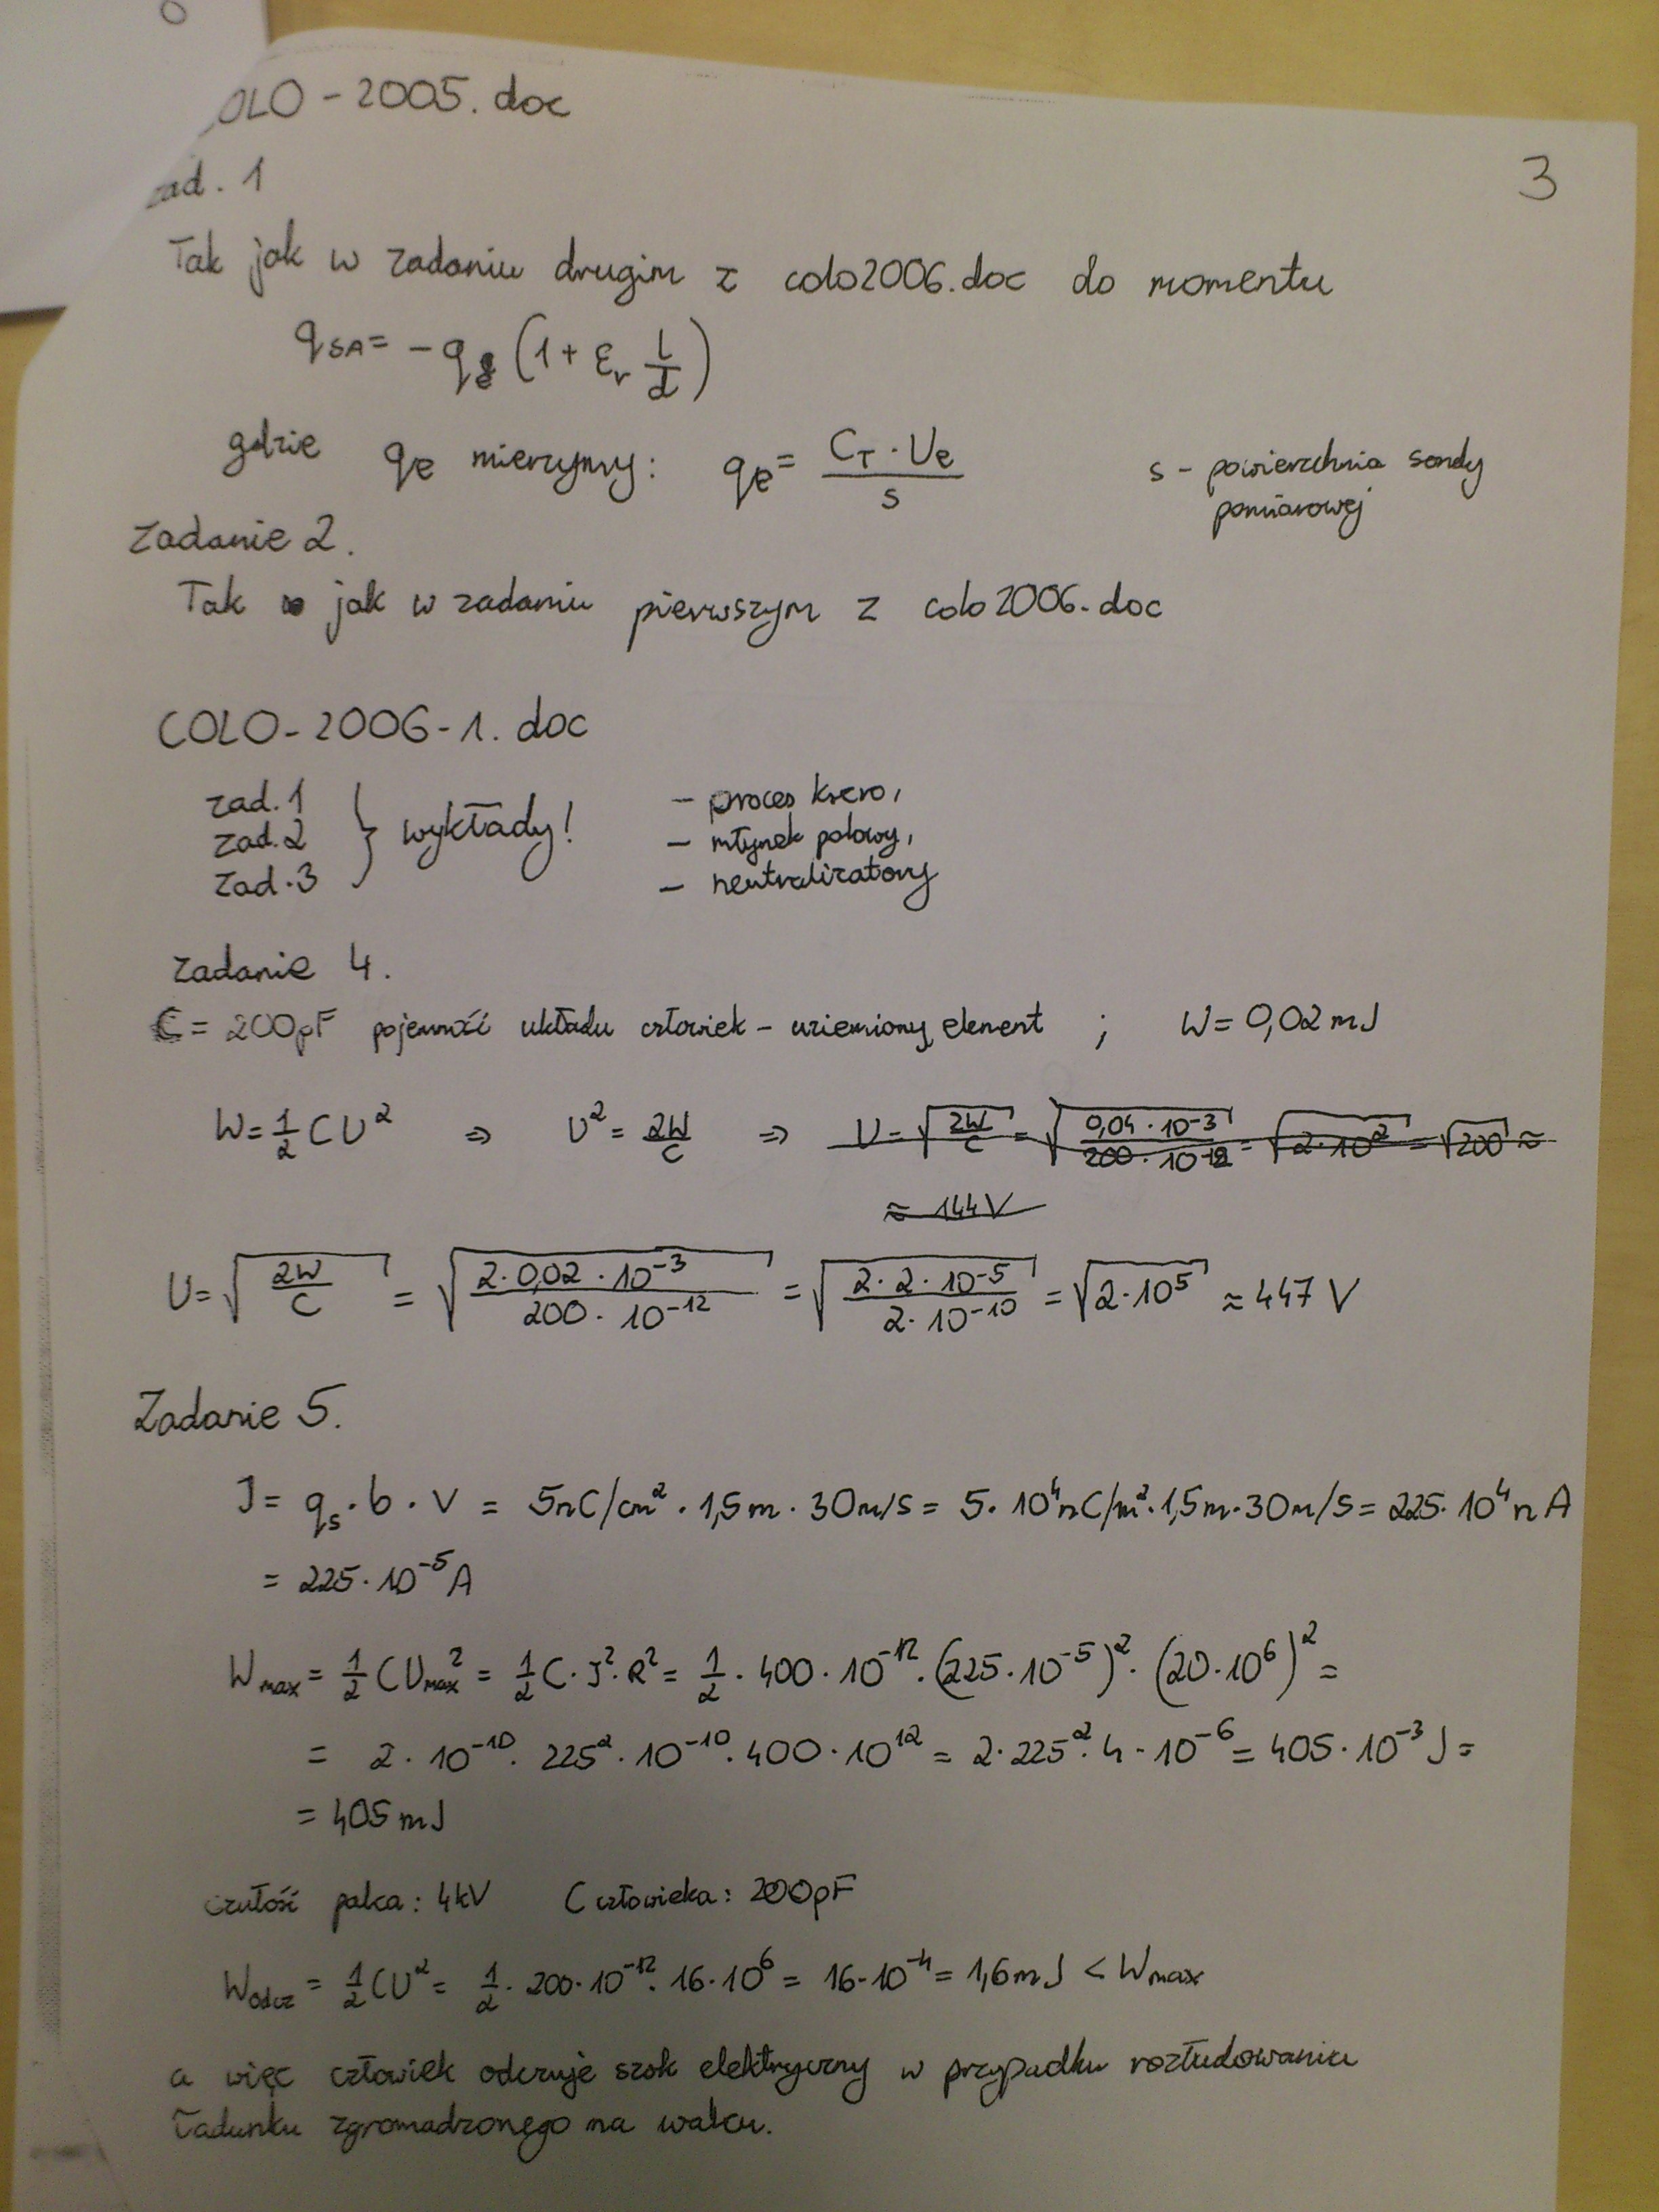 OLO - 2005. doc
ad. 1
3
Tak jak w zadaniu drugim z colo2006.doc do momentu
qSA = - qe (1 + εr l/d)
gdzie qe mierzymy: qe = CT · Ue / s
s - powierzchnia sondy
pomiarowej
Zadanie 2.
Tak jak w zadaniu pierwszym z colo2006.doc
COLO - 2006 - 1. doc
zad. 1
zad. 2 } wykłady!
zad. 3
- proces ksero,
- młynek polowy,
- neutralizatory
Zadanie 4.
C = 200pF pojemność układu człowiek - uziemiony element ; W = 0,02 mJ
W = 1/2 CU² ⇒ U² = 2W/C ⇒ U = √(2W/C) = √(0,04 · 10⁻³ / 200 · 10⁻¹²) = √(2 · 10²) = √200 ≈
≈ 144 V
U = √(2W/C) = √(2 · 0,02 · 10⁻³ / 200 · 10⁻¹²) = √(2 · 2 · 10⁻⁵ / 2 · 10⁻¹⁰) = √(2 · 10⁵) ≈ 447 V
Zadanie 5.
J = qs · b · V = 5nC/cm² · 1,5m · 30m/s = 5 · 10⁴ nC/m² · 1,5m · 30m/s = 225 · 10⁴ nA
= 225 · 10⁻⁵ A
Wmax = 1/2 CUmax² = 1/2 C · J² · R² = 1/2 · 400 · 10⁻¹² · (225 · 10⁻⁵)² · (20 · 10⁶)² =
= 2 · 10⁻¹⁰ · 225² · 10⁻¹⁰ · 400 · 10¹² = 2 · 225² · 4 · 10⁻⁶ = 405 · 10⁻³ J =
= 405 mJ
czułość palca: 4kV C człowieka: 200pF
Wodcz = 1/2 CU² = 1/2 · 200 · 10⁻¹² · 16 · 10⁶ = 16 · 10⁻⁴ = 1,6 mJ < Wmax
a więc człowiek odczuje szok elektryczny w przypadku rozładowania
ładunku zgromadzonego na wałku.